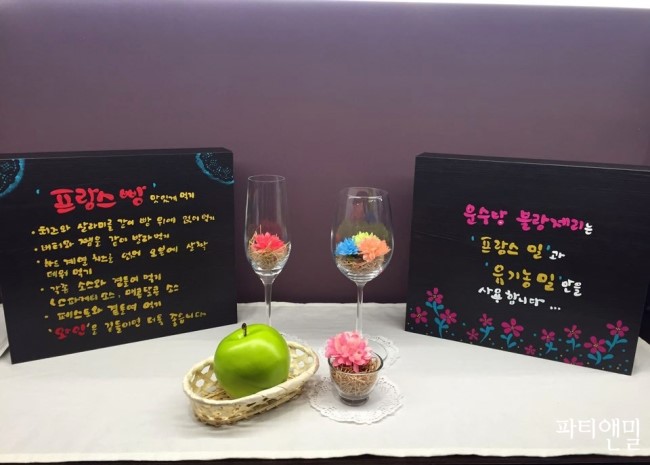 "프랑스빵" 맛있게 먹기
• 치즈와 살라미를 같이 빵 위에 얹어 먹기
• 버터와 잼을 같이 발라 먹기
• 하드 계열 치즈를 얹어 오븐에 살짝
데워 먹기
• 각종 소스와 곁들여 먹기
(스파게티 소스, 매콤달콤 소스
• 페스토와 곁들여 먹기
• 와인을 곁들이면 더욱 좋습니다.
윤수당 블랑제리는
"프랑스 밀"과
"유기농밀"만을
사용합니다...
파티앤밀